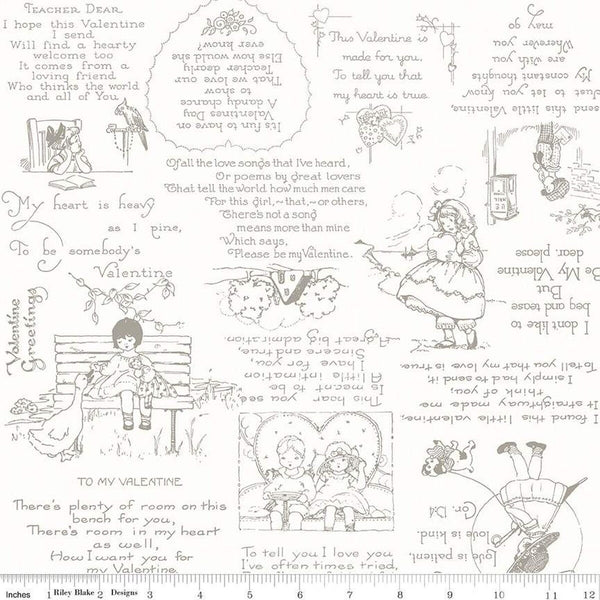 TEACHER DEAR
I hope this Valentine
I send
Will find a hearty
welcome too
It comes from a
loving friend
Who thinks the world
and all of You
It's fun to have on
Valentines Day
A dandy chance
to show
That we love our
Teacher dearly
Else how would she
ever know?
This Valentine is
made for you,
To tell you that
my heart is true.
send this little Valentine,
Just to let you know
My constant thoughts
are with you
Wherever you
may go
Of all the love songs that I've heard,
Or poems by great lovers
That tell the world how much men care
For this girl, ~that,~ or others,
There's not a song
means more than mine
Which says,
Please be my Valentine.
My heart is heavy
as I pine,
To be somebody's
Valentine
Valentine
Greetings
I don't like to
beg and tease
But
Be My Valentine
dear, please
This heart you see
Is meant to be
A little intimation
I have for you,
Sincere and true,
A great big admiration
I found this little valentine,
It straightway made me
think of you,
I simply had to send it
To tell you that my love is true.
TO MY VALENTINE
There's plenty of room on this
bench for you,
There's room in my heart
as well,
How I want you for
my Valentine
To tell you I love you
I've often times tried,
Love is patient,
love is kind
Cor. 13:4
Inches 1 Riley Blake 2 Designs 3 4 5 6 7 8 9 10 11 12